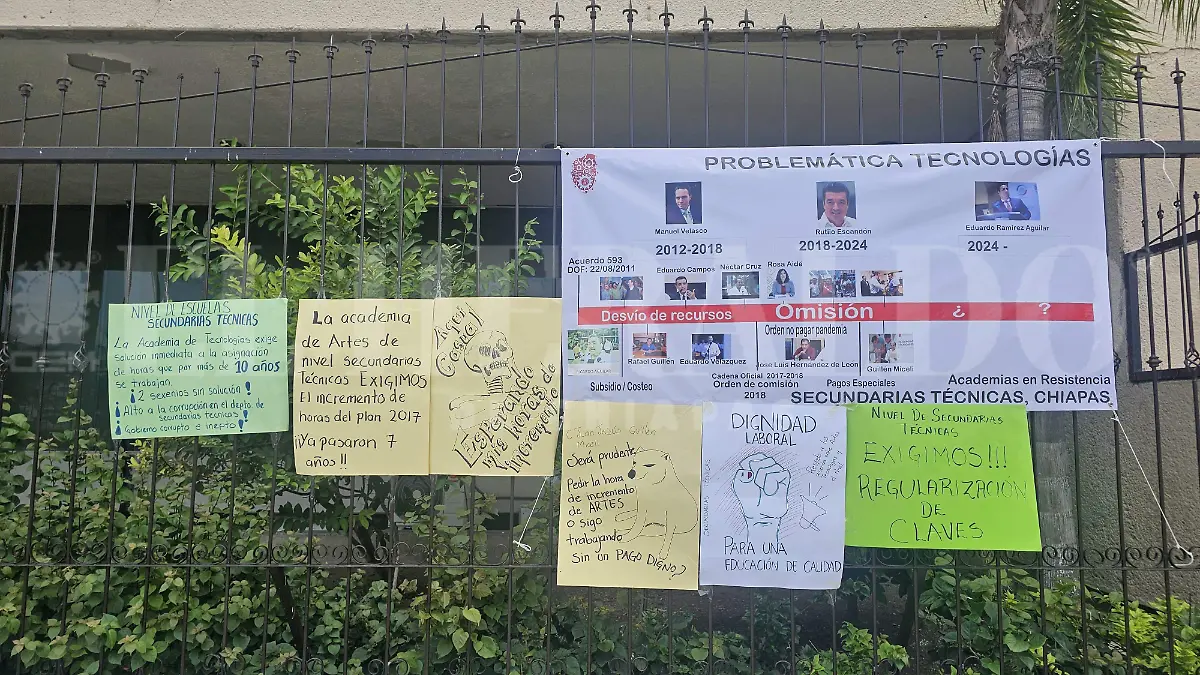 PROBLEMÁTICA TECNOLOGÍAS
Manuel Velasco
Rutilio Escandon
Eduardo Ramirez Aguilar
2012-2018
2018-2024
2024 -
Acuerdo 593
DOF: 22/08/2011
Eduardo Campos
Néctar Cruz
Rosa Aidé
Desvío de recursos
Omisión
¿ ?
Orden no pagar pandemia
Rafael Guillén
Eduardo Velazquez
Jose Luis Hernandez de Leon
Guillen Miceli
Subsidio / Costeo
Cadena Oficial 2017-2018
Orden de comisión
2018
Pagos Especiales
2018
Academias en Resistencia
SECUNDARIAS TÉCNICAS, CHIAPAS,
NIVEL DE ESCUELAS
SECUNDARIAS TECNICAS
La Academia de Tecnologías exige
solución inmediata a la asignación
de horas que por más de 10 años
se trabajan.
¡2 sexenios sin solución!
¡Alto a la corrupción en el depto. de
secundarias técnicas!
¡Gobierno corrupto e inepto!
La academia
de Artes de
nivel secundarias
Técnicas EXIGIMOS
El incremento de
horas del plan 2017
¡Ya pasaron 7
años!!
Artes
Costeo!
Esperando
mis horas de
incremento
Será prudente
Pedir la hora
de incremento
de ARTES
o sigo
trabajando
sin un PAGO DIGNO?
DIGNIDAD
LABORAL
PARA UNA
EDUCACIÓN DE CALIDAD
NIVEL DE SECUNDARIAS
TÉCNICAS
EXIGIMOS!!!
REGULARIZACIÓN
DE
CLAVES